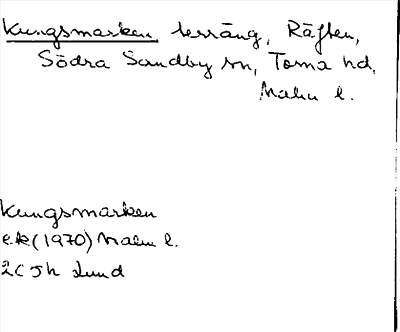 Kungsmarken terräng, Räften,
Södra Sandby sn, Torna hd.
Malm l.
Kungsmarken
ek (1970) Malm l.
2C 5h Lund